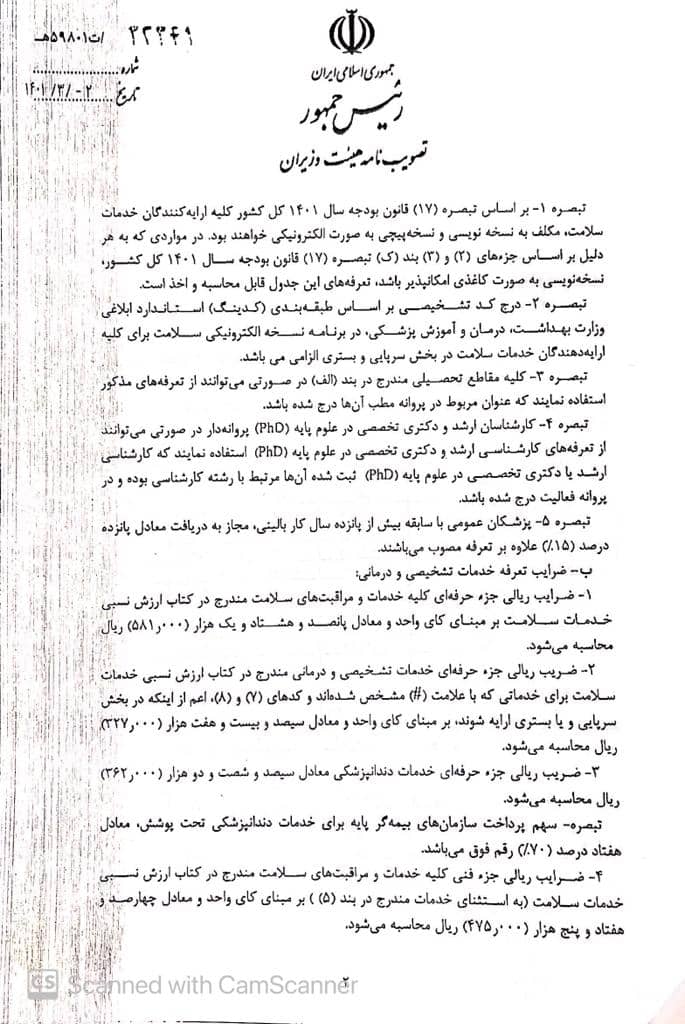 ۳۲۳۴۹ /ت۵۹۸۰۱هـ
شماره
تاریخ ۱۴۰۱/۳/۰۲
جمهوری اسلامی ایران
رئیس جمهور
تصویب نامه هیئت وزیران
تبصره ۱- بر اساس تبصره (۱۷) قانون بودجه سال ۱۴۰۱ کل کشور کلیه ارایه‌کنندگان خدمات
سلامت، مکلف به نسخه نویسی و نسخه‌پیچی به صورت الکترونیکی خواهند بود. در مواردی که به هر
دلیل بر اساس جزءهای (۲) و (۳) بند (ک) تبصره (۱۷) قانون بودجه سال ۱۴۰۱ کل کشور،
نسخه‌نویسی به صورت کاغذی امکانپذیر باشد، تعرفه‌های این جدول قابل محاسبه و اخذ است.
تبصره ۲- درج کد تشخیصی بر اساس طبقه‌بندی (کدینگ) استاندارد ابلاغی
وزارت بهداشت، درمان و آموزش پزشکی، در برنامه نسخه الکترونیکی سلامت برای کلیه
ارایه‌دهندگان خدمات سلامت در بخش سرپایی و بستری الزامی می باشد.
تبصره ۳- کلیه مقاطع تحصیلی مندرج در بند (الف) در صورتی می‌توانند از تعرفه‌های مذکور
استفاده نمایند که عنوان مربوط در پروانه مطب آن‌ها درج شده باشد.
تبصره ۴- کارشناسان ارشد و دکتری تخصصی در علوم پایه (PhD) پروانه‌دار در صورتی می‌توانند
از تعرفه‌های کارشناسی ارشد و دکتری تخصصی در علوم پایه (PhD) استفاده نمایند که کارشناسی
ارشد یا دکتری تخصصی در علوم پایه (PhD) ثبت شده آن‌ها مرتبط با رشته کارشناسی بوده و در
پروانه فعالیت درج شده باشد.
تبصره ۵- پزشکان عمومی با سابقه بیش از پانزده سال کار بالینی، مجاز به دریافت معادل پانزده
درصد (۱۵٪) علاوه بر تعرفه مصوب می‌باشند.
ب- ضرایب تعرفه خدمات تشخیصی و درمانی:
۱- ضرایب ریالی جزء حرفه‌ای کلیه خدمات و مراقبت‌های سلامت مندرج در کتاب ارزش نسبی
خدمات سلامت بر مبنای کای واحد و معادل پانصد و هشتاد و یک هزار (۵۸۱٫۰۰۰) ریال
محاسبه می‌شود.
۲- ضریب ریالی جزء حرفه‌ای خدمات تشخیصی و درمانی مندرج در کتاب ارزش نسبی خدمات
سلامت برای خدماتی که با علامت (#) مشخص شده‌اند و کدهای (۷) و (۸)، اعم از اینکه در بخش
سرپایی و یا بستری ارایه شوند، بر مبنای کای واحد و معادل سیصد و بیست و هفت هزار (۳۲۷٫۰۰۰)
ریال محاسبه می‌شود.
۳- ضریب ریالی جزء حرفه‌ای خدمات دندانپزشکی معادل سیصد و شصت و دو هزار (۳۶۲٫۰۰۰)
ریال محاسبه می‌شود.
تبصره- سهم پرداخت سازمان‌های بیمه‌گر پایه برای خدمات دندانپزشکی تحت پوشش، معادل
هفتاد درصد (۷۰٪) رقم فوق می‌باشد.
۴- ضرایب ریالی جزء فنی کلیه خدمات و مراقبت‌های سلامت مندرج در کتاب ارزش نسبی
خدمات سلامت (به استثنای خدمات مندرج در بند (۵) ) بر مبنای کای واحد و معادل چهارصد و
هفتاد و پنج هزار (۴۷۵٫۰۰۰) ریال محاسبه می‌شود.
۲
CS Scanned with CamScanner